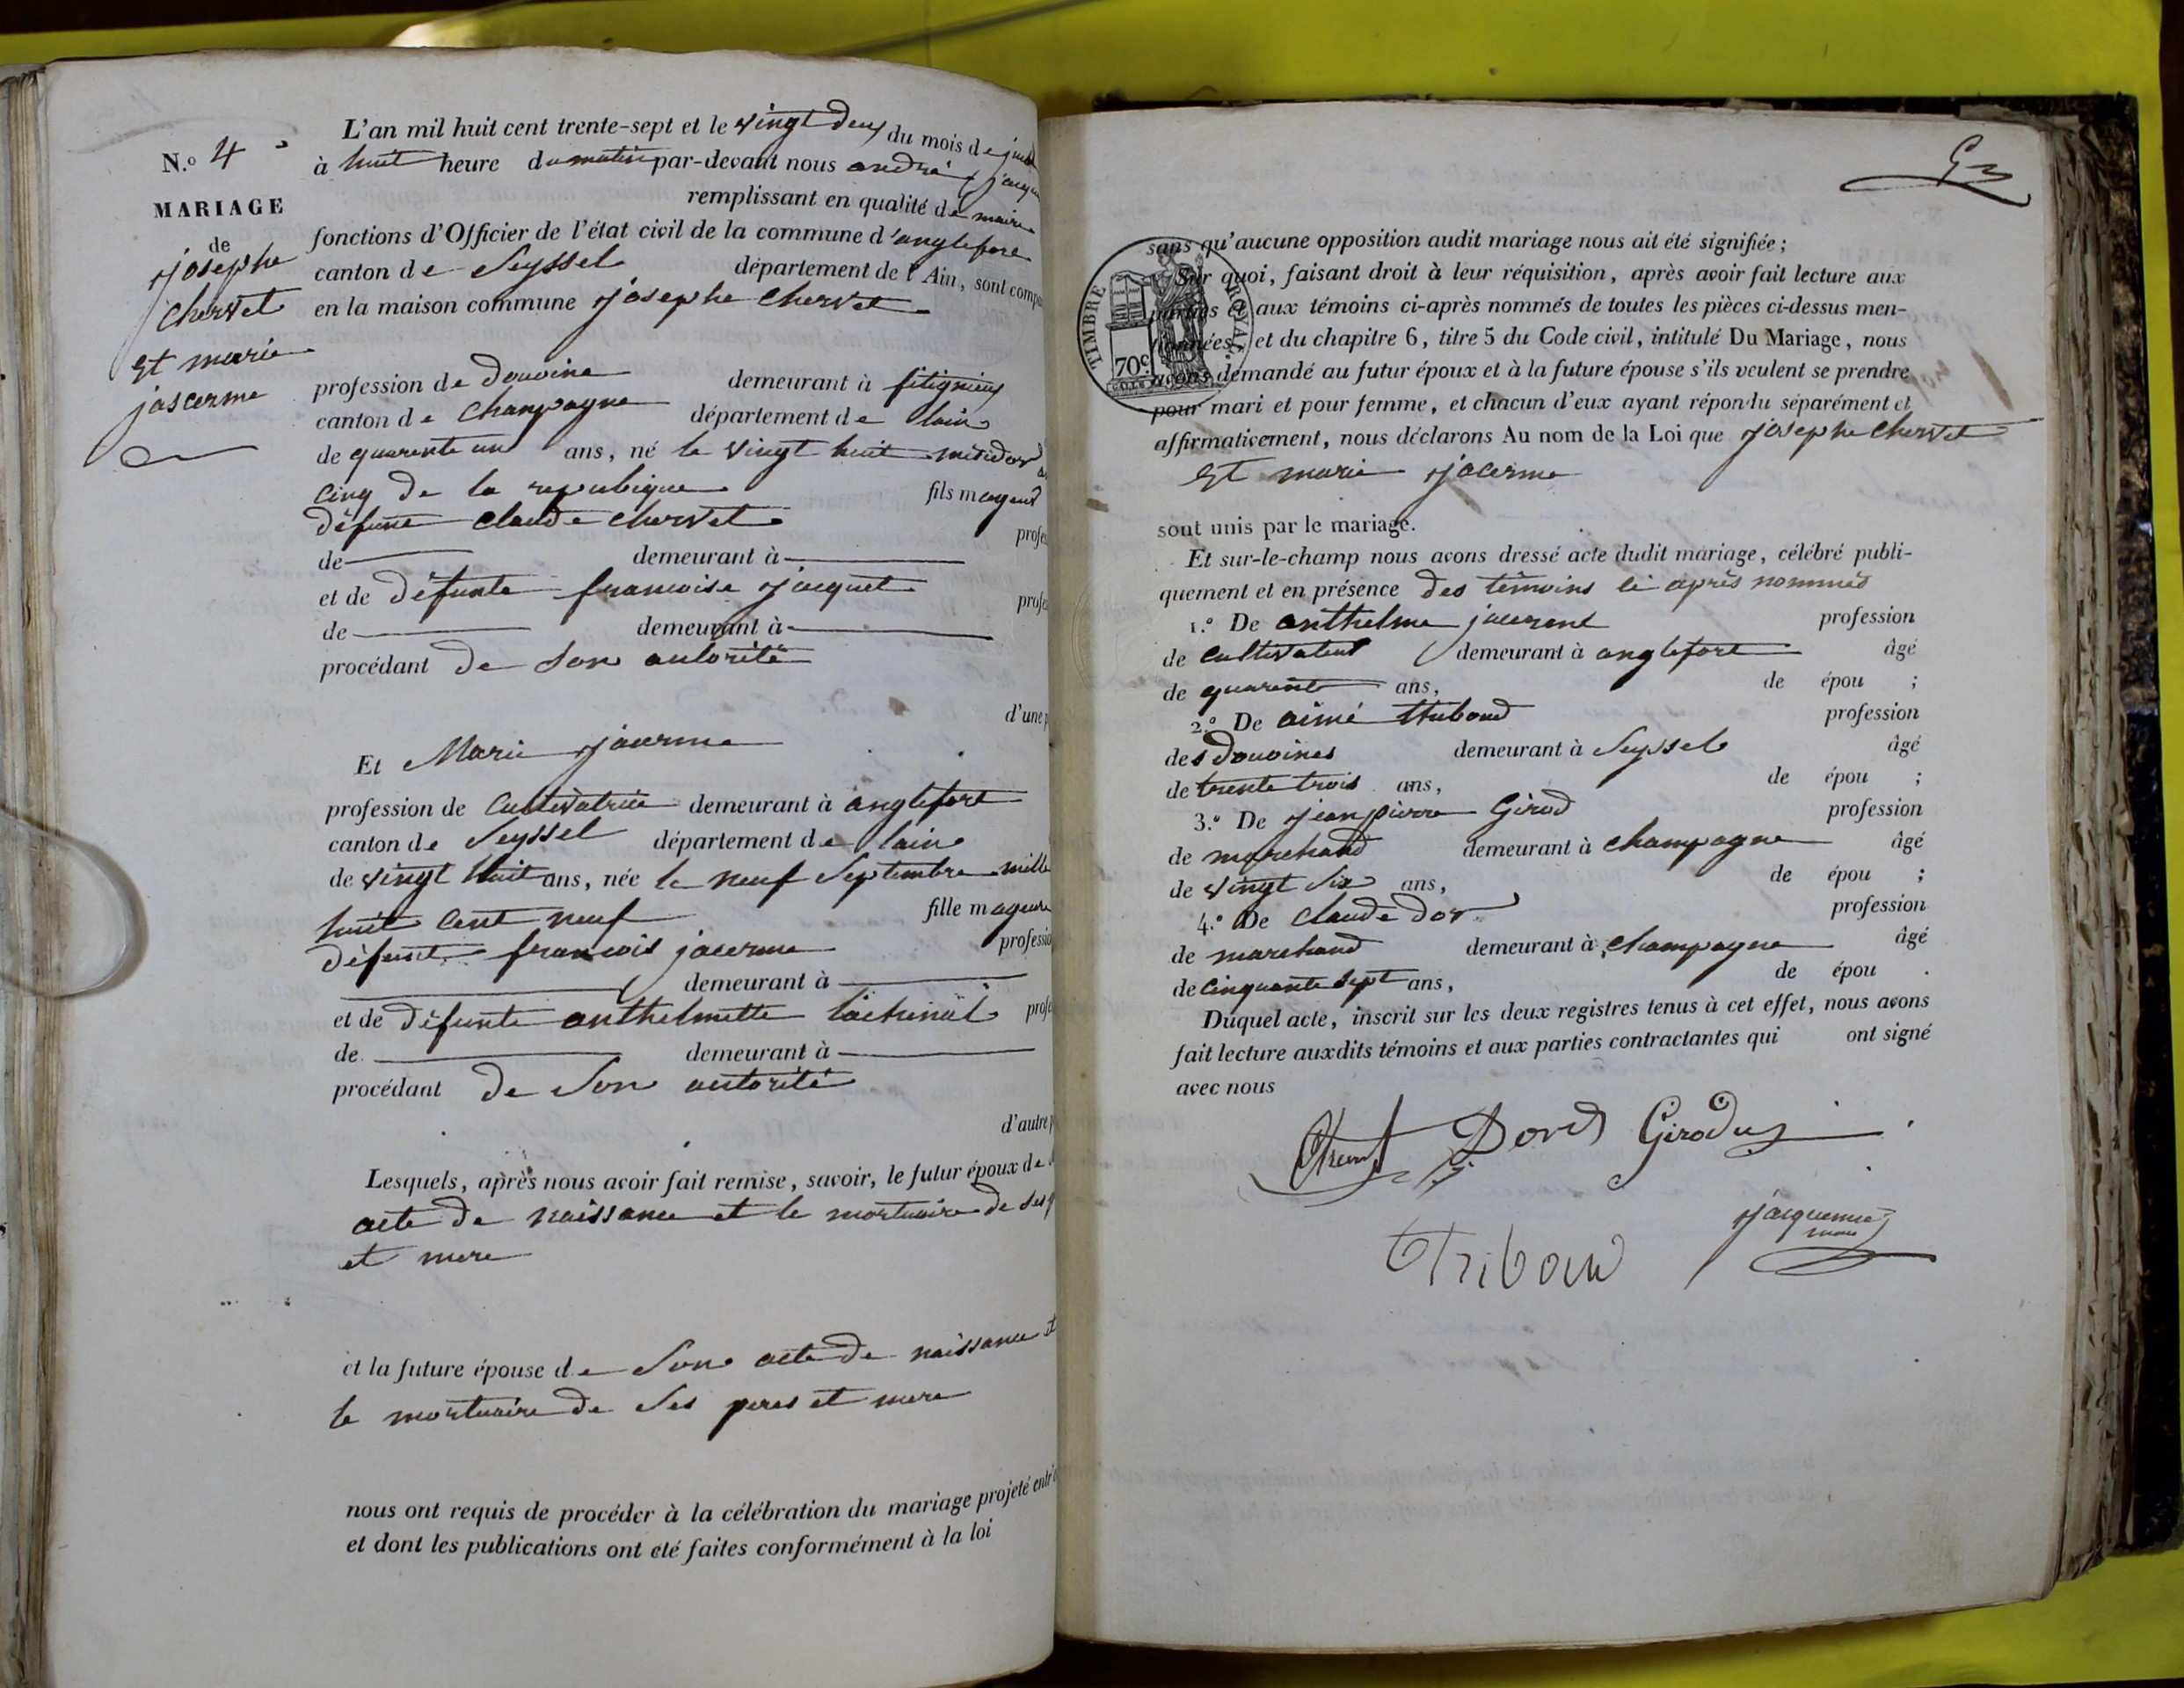 N.o 4
MARIAGE
de
josephe
Chervet
Et marie
jascerme
L'an mil huit cent trente-sept et le vingt deux du mois de
à huit heure du matin par-devant nous andré
remplissant en qualité de maire
fonctions d'Officier de l'état civil de la commune d'anglefort
canton de Seyssel département de l'Ain, sont comp
en la maison commune josephe Chervet
profession de douoine demeurant à fitignieu
canton de Champagne département de lain
de quarente un ans, né le vingt huit mésidor
cinq de la republique fils mageur
défunt claude chervet profes
de demeurant à
et de défunte francoise jacquet profes
de demeurant à
procédant de son autorité
d'une p
Et Marie jacerme
profession de Cultivatrice demeurant à anglefort
canton de Seyssel département de lain
de vingt huit ans, née le neuf Septembre mille
huit cent neuf fille mageure
défunt francois jacerme professio
demeurant à
et de défunte anthelmette profe
de demeurant à
procédant de Son autorité
d'autre p
Lesquels, après nous avoir fait remise, savoir, le futur époux de
acte de naissance et le mortuaire de ses p
et mere
et la future épouse de Son acte de naissance et
le mortuaire de Ses peres et mere
nous ont requis de procéder à la célébration du mariage projeté entr'e
et dont les publications ont été faites conformément à la loi
TIMBRE ROYAL
70c
sans qu'aucune opposition audit mariage nous ait été signifiée;
Sur quoi, faisant droit à leur réquisition, après avoir fait lecture aux
parties et aux témoins ci-après nommés de toutes les pièces ci-dessus men-
tionnées, et du chapitre 6, titre 5 du Code civil, intitulé Du Mariage, nous
avons demandé au futur époux et à la future épouse s'ils veulent se prendre
pour mari et pour femme, et chacun d'eux ayant répondu séparément et
affirmativement, nous déclarons Au nom de la Loi que josephe Chervet
Et marie jacerme
sont unis par le mariage.
Et sur-le-champ nous avons dressé acte dudit mariage, célébré publi-
quement et en présence des témoins ci après nommés
1.o De anthelme profession
de Cultivateur demeurant à anglefort âgé
de quarente ans, de épou ;
2.o De aimé profession
des douoines demeurant à Seyssel âgé
de trente trois ans, de épou ;
3.o De jean pierre Girod profession
de marchand demeurant à Champagne âgé
de vingt Six ans, de épou ;
4.o De Claude dor profession
de marchand demeurant à Champagne âgé
de Cinquante Sept ans, de épou .
Duquel acte, inscrit sur les deux registres tenus à cet effet, nous avons
fait lecture auxdits témoins et aux parties contractantes qui ont signé
avec nous